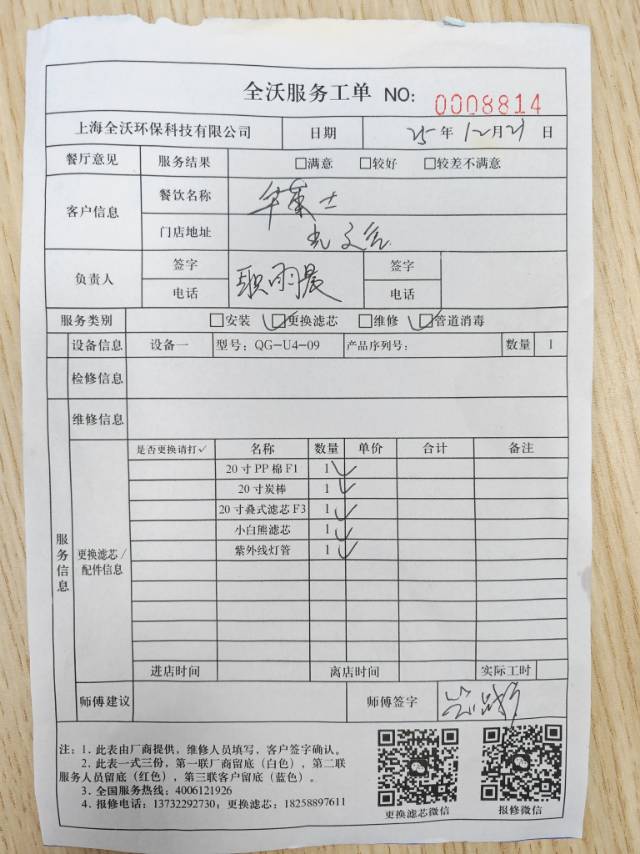 全沃服务工单 NO: 0008814
上海全沃环保科技有限公司 日期 25年12月21日
餐厅意见 服务结果 □满意 □较好 □较差不满意
客户信息 餐饮名称 华莱士
门店地址
负责人 签字 耿雨晨 签字
电话 电话
服务类别 □安装 ☑更换滤芯 □维修 ☑管道消毒
设备信息 设备一 型号: QG-U4-09 产品序列号: 数量 1
检修信息
维修信息
服务信息
更换滤芯/配件信息
是否更换请打✓ 名称 数量 单价 合计 备注
20寸PP棉F1 1 ✓
20寸炭棒 1 ✓
20寸叠式滤芯F3 1 ✓
小白熊滤芯 1 ✓
紫外线灯管 1 ✓
进店时间 离店时间 实际工时
师傅建议 师傅签字
注: 1. 此表由厂商提供, 维修人员填写, 客户签字确认。
2. 此表一式三份, 第一联厂商留底(白色), 第二联
服务人员留底(红色), 第三联客户留底(蓝色)。
3. 全国服务热线: 4006121926
4. 报修电话: 13732292730; 更换滤芯: 18258897611
更换滤芯微信 报修微信